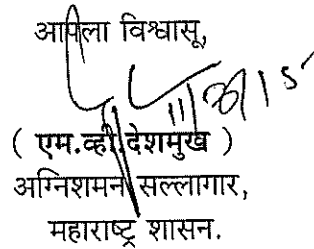 आपला विश्वासू,
( एम.व्ही.देशमुख )
अग्निशमन सल्लागार,
महाराष्ट्र शासन.